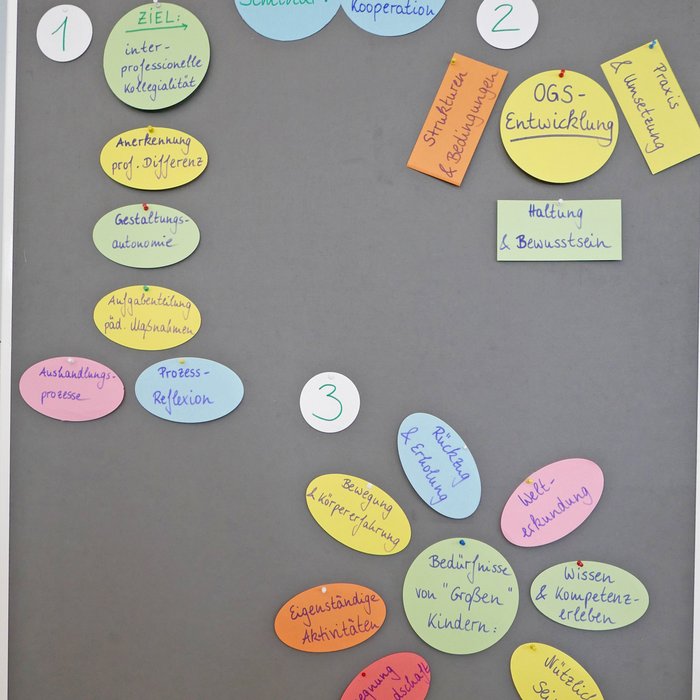 Seminar:
Kooperation
1
ZIEL:
inter-
professionelle
Kollegialität
Anerkennung
prof. Differenz
Gestaltungs-
autonomie
Aufgabenteilung
päd. Maßnahmen
Aushandlungs-
prozesse
Prozess-
Reflexion
2
Strukturen
& Bedingungen
OGS-
Entwicklung
Praxis
& Umsetzung
Haltung
& Bewusstsein
3
Rückzug
& Erholung
Bewegung
& Körpererfahrung
Welt-
erkundung
Bedürfnisse
von "Großen"
Kindern:
Wissen
& Kompetenz-
erleben
Eigenständige
Aktivitäten